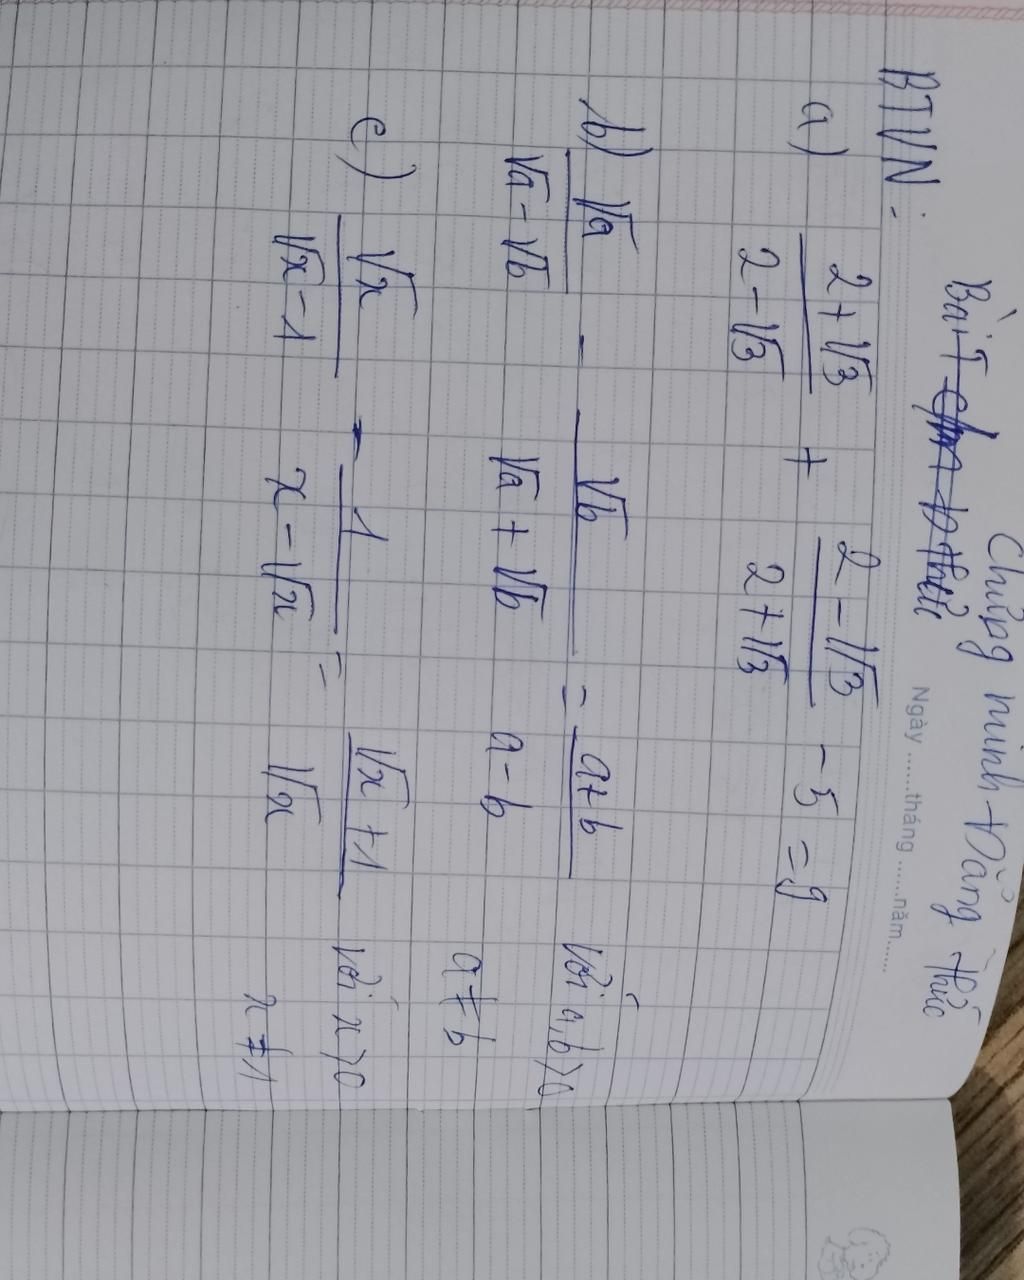 Chứng minh đẳng thức
Bài 1
Ngày ......tháng ......năm......
BTVN:
a) (2+√3)/(2-√3) + (2-√3)/(2+√3) - 5 = 9
b) √a/(√a-√b) - √b/(√a+√b) = (a+b)/(a-b) Với a,b>0
a≠b
c) √x/(√x-1) - 1/(x-√x) = (√x+1)/√x Với x>0
x≠1